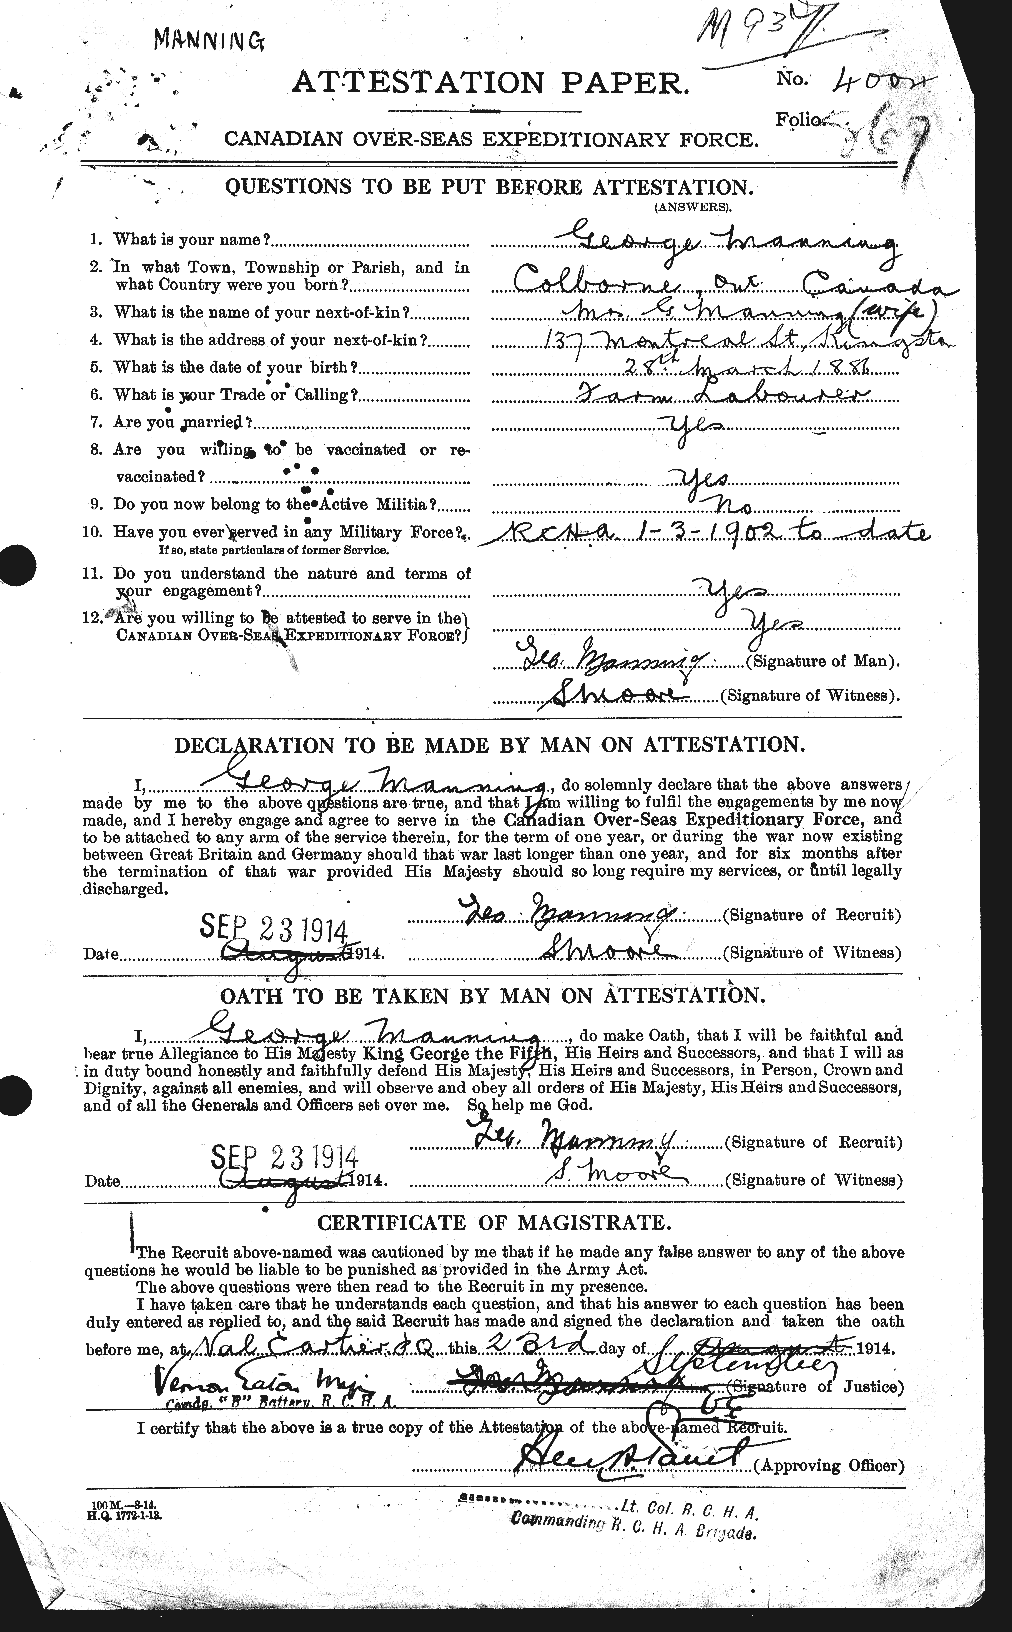 M 937.
MANNING
ATTESTATION PAPER.
No.
Folio.
CANADIAN OVER-SEAS EXPEDITIONARY FORCE.
QUESTIONS TO BE PUT BEFORE ATTESTATION.
(ANSWERS).
1. What is your name? George Manning
2. In what Town, Township or Parish, and in
what Country were you born? Colborne, Ont Canada
3. What is the name of your next-of-kin? Mrs G Manning (wife)
4. What is the address of your next-of-kin? 137 Montreal St, Kingston
5. What is the date of your birth? 28th March 1886
6. What is your Trade or Calling? Farm Labourer
7. Are you married? Yes
8. Are you willing to be vaccinated or re-
vaccinated? Yes
9. Do you now belong to the Active Militia? No
10. Have you ever served in any Military Force? RCHA 1-3-1902 to date
If so, state particulars of former Service.
11. Do you understand the nature and terms of
your engagement? Yes
12. Are you willing to be attested to serve in the
CANADIAN OVER-SEAS EXPEDITIONARY FORCE? Yes
Geo. Manning (Signature of Man).
S Moore (Signature of Witness).
DECLARATION TO BE MADE BY MAN ON ATTESTATION.
I, George Manning, do solemnly declare that the above answers
made by me to the above questions are true, and that I am willing to fulfil the engagements by me now
made, and I hereby engage and agree to serve in the Canadian Over-Seas Expeditionary Force, and
to be attached to any arm of the service therein, for the term of one year, or during the war now existing
between Great Britain and Germany should that war last longer than one year, and for six months after
the termination of that war provided His Majesty should so long require my services, or until legally
discharged.
Geo Manning (Signature of Recruit)
SEP 23 1914
Date August 1914. S Moore (Signature of Witness)
OATH TO BE TAKEN BY MAN ON ATTESTATION.
I, George Manning, do make Oath, that I will be faithful and
bear true Allegiance to His Majesty King George the Fifth, His Heirs and Successors, and that I will as
in duty bound honestly and faithfully defend His Majesty, His Heirs and Successors, in Person, Crown and
Dignity, against all enemies, and will observe and obey all orders of His Majesty, His Heirs and Successors,
and of all the Generals and Officers set over me. So help me God.
Geo. Manning (Signature of Recruit)
SEP 23 1914
Date August 1914. S. Moore (Signature of Witness)
CERTIFICATE OF MAGISTRATE.
The Recruit above-named was cautioned by me that if he made any false answer to any of the above
questions he would be liable to be punished as provided in the Army Act.
The above questions were then read to the Recruit in my presence.
I have taken care that he understands each question, and that his answer to each question has been
duly entered as replied to, and the said Recruit has made and signed the declaration and taken the oath
before me, at Val Cartier PQ this 23rd day of August 1914.
September
Vernon Eaton Major Geo Manning (Signature of Justice)
Comdg. "B" Battery, R. C. H. A.
I certify that the above is a true copy of the Attestation of the above-named Recruit.
(Approving Officer)
100 M.—8-14.
H.Q. 1772-1-13.
Lt. Col. R. C. H. A.
Commanding R. C. H. A. Brigade.